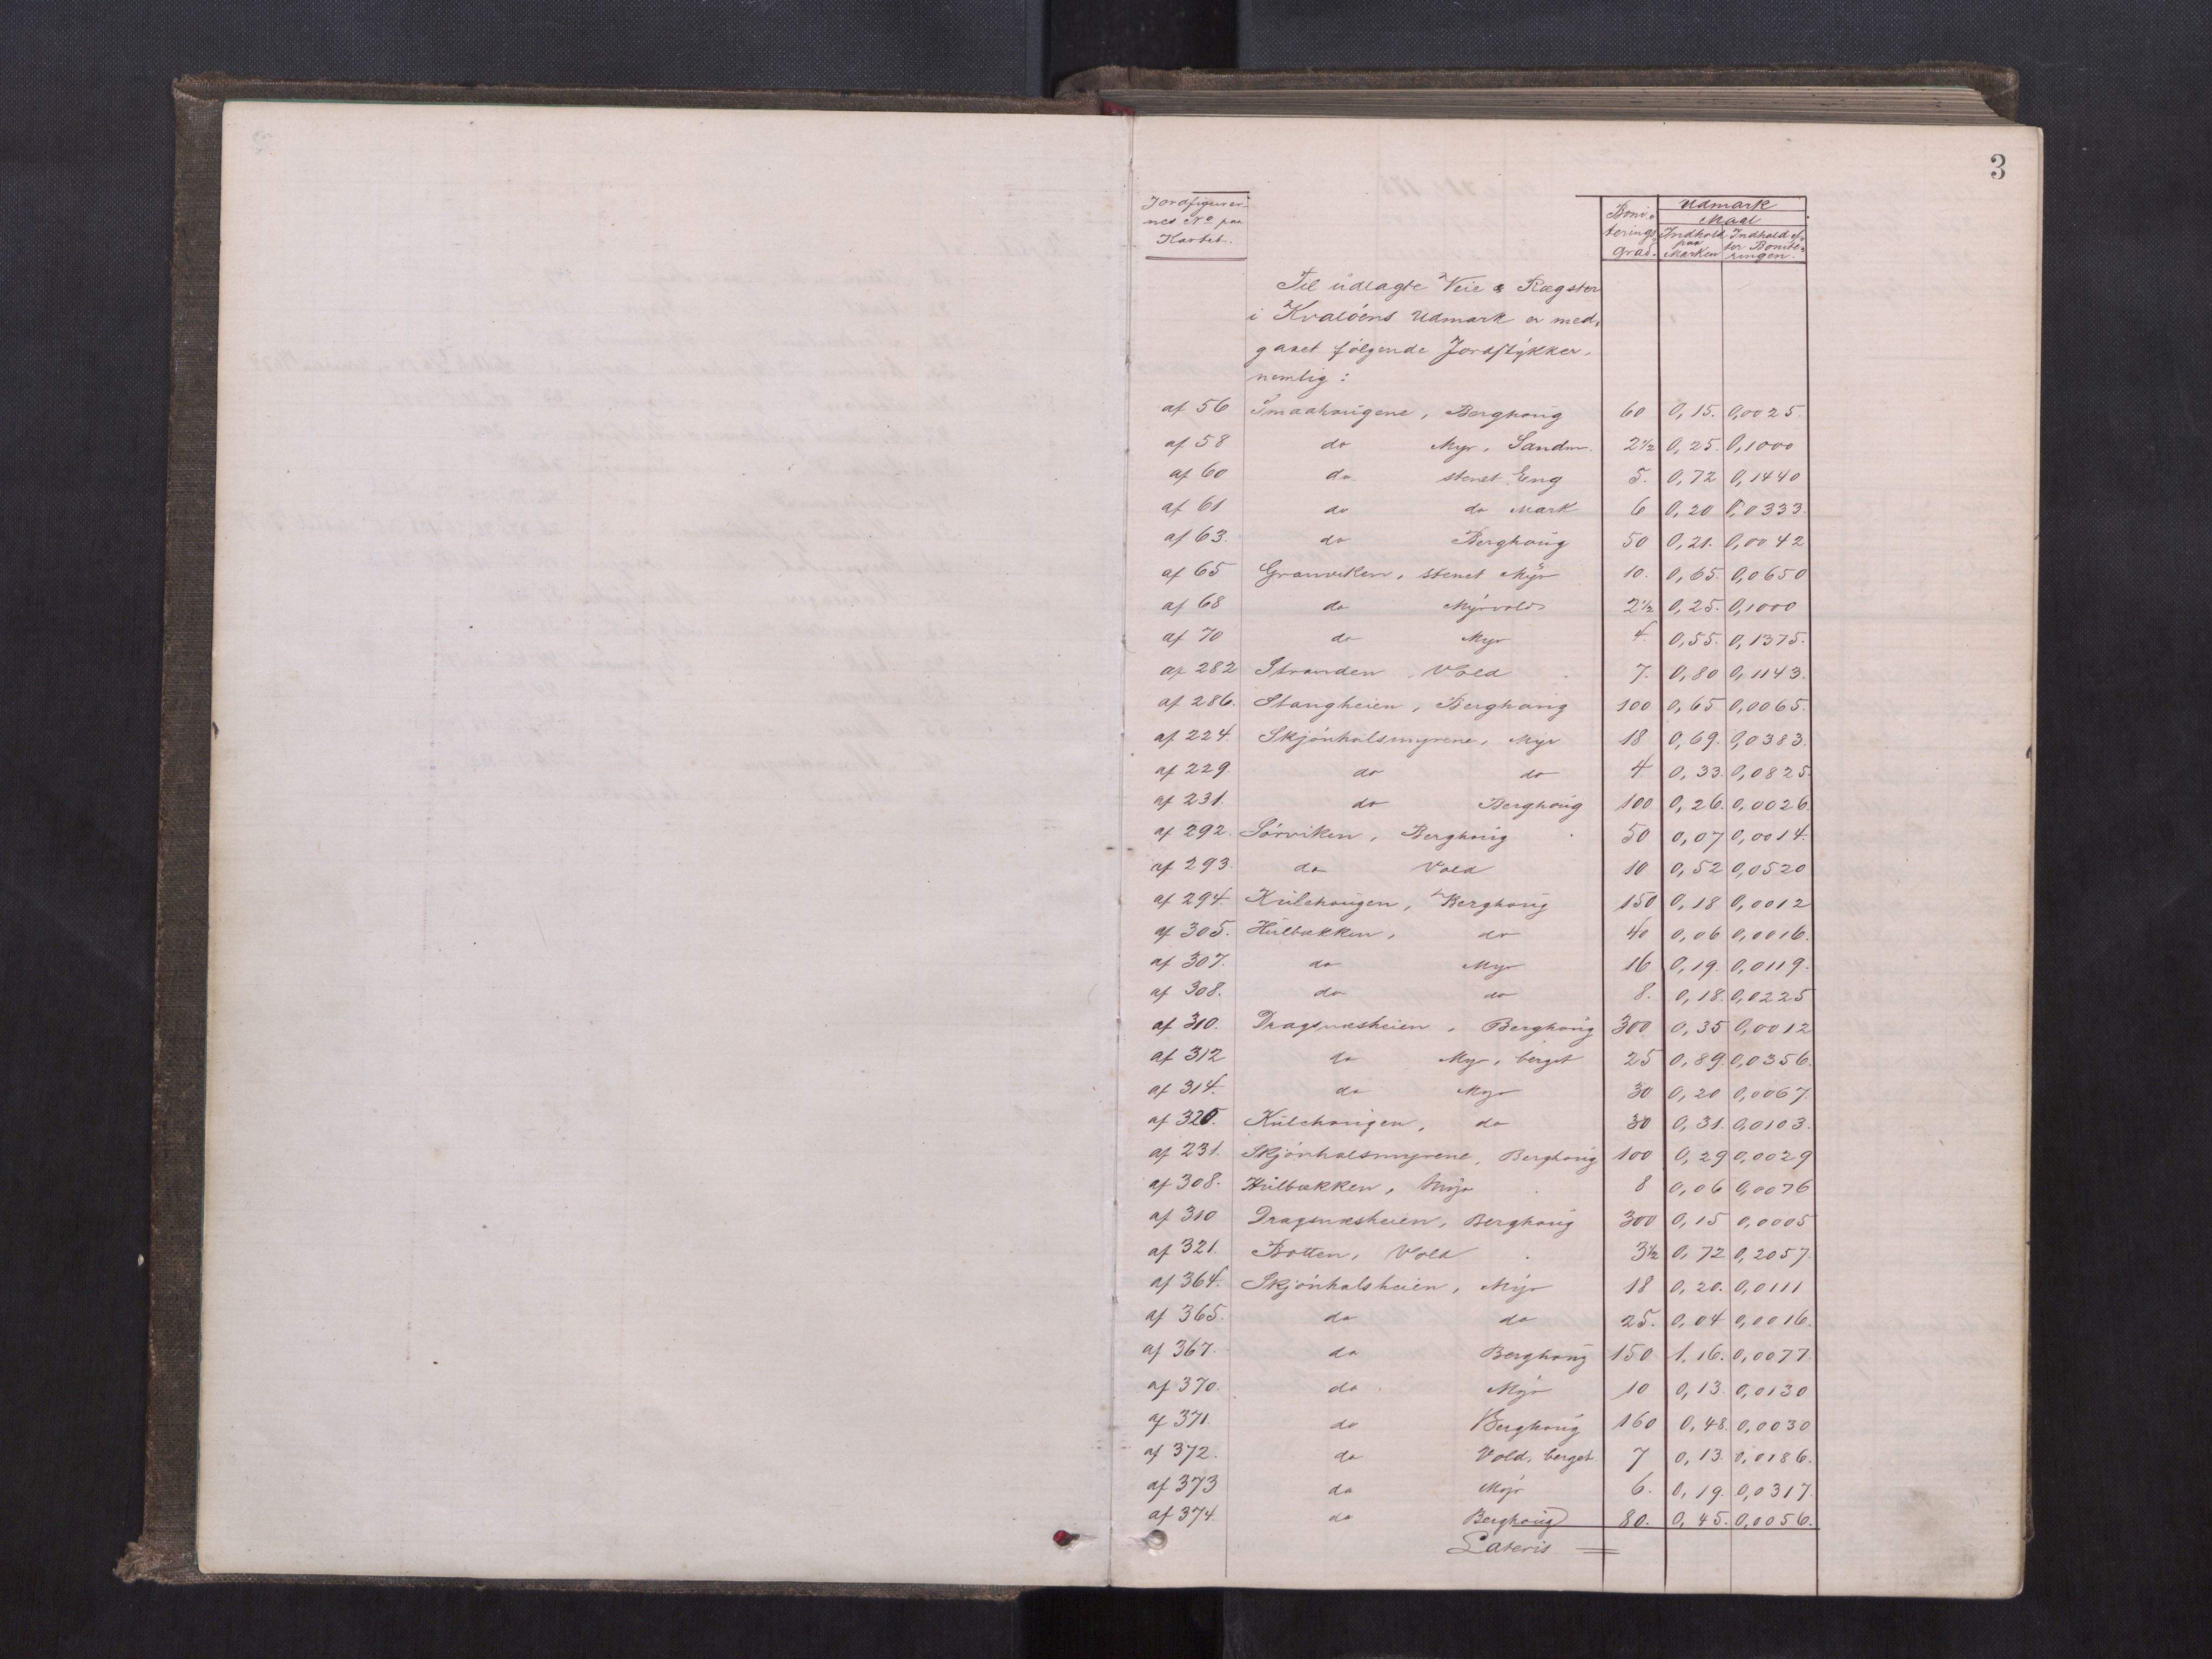 3
Jordfigurer-
nes No paa
Kartet.
Boni-
terings
Grad.
Udmark
Maal
Indhold
paa
Marken
Indhold ef-
ter Bonite-
ringen.
Til udlagte Veie & Rægster
i Kvaløens Udmark er med-
gaaet følgende Jordstykker,
nemlig:
af 56 Smaahougene, Berghoug 60 0,15. 0,0025.
af 58 do Myr, Sandm. 2½ 0,25. 0,1000
af 60 do stenet Eng 5. 0,72 0,1440
af 61 do do Mark 6 0,20 0,0333.
af 63. do Berghoug 50 0,21. 0,0042
af 65 Granviken, stenet Myr 10. 0,65. 0,0650
af 68 do Myrvold 2½ 0,25. 0,1000
af 70 do Myr 4. 0,55. 0,1375.
af 282 Stranden, Vold 7. 0,80 0,1143.
af 286. Stangheien, Berghoug 100 0,65 0,0065.
af 224. Skjønhalsmyrene, Myr 18 0,69. 0,0383.
af 229 do do 4 0,33. 0,0825.
af 231. do Berghoug 100 0,26. 0,0026.
af 292. Sørviken, Berghoug 50 0,07 0,0014.
af 293. do Vold 10 0,52 0,0520
af 294. Kulehougen, Berghoug 150 0,18 0,0012
af 305. Hulbækken, do 40 0,06 0,0016.
af 307. do Myr 16 0,19. 0,0119.
af 308. do do 8. 0,18. 0,0225
af 310. Dragsnæsheien, Berghoug 300 0,35 0,0012
af 312 do Myr, berget 25 0,89. 0,0356.
af 314. do Myr 30 0,20 0,0067.
af 320. Kulehougen, do 30 0,31. 0,0103.
af 231. Skjønhalsmyrene, Berghoug 100 0,29 0,0029
af 308. Hulbækken, Myr 8 0,06 0,0076
af 310 Dragsnæsheien, Berghoug 300 0,15 0,0005
af 321. Botten, Vold 3½ 0,72 0,2057.
af 364. Skjønhalsheien, Myr 18 0,20. 0,0111
af 365. do do 25. 0,04 0,0016.
af 367. do Berghoug 150 1,16. 0,0077
af 370. do Myr 10 0,13. 0,0130
af 371. do Berghoug 160 0,48. 0,0030
af 372. do Vold, berget 7 0,13. 0,0186.
af 373 do Myr 6. 0,19. 0,0317.
af 374. do Berghoug 80. 0,45. 0,0056.
Lateris =